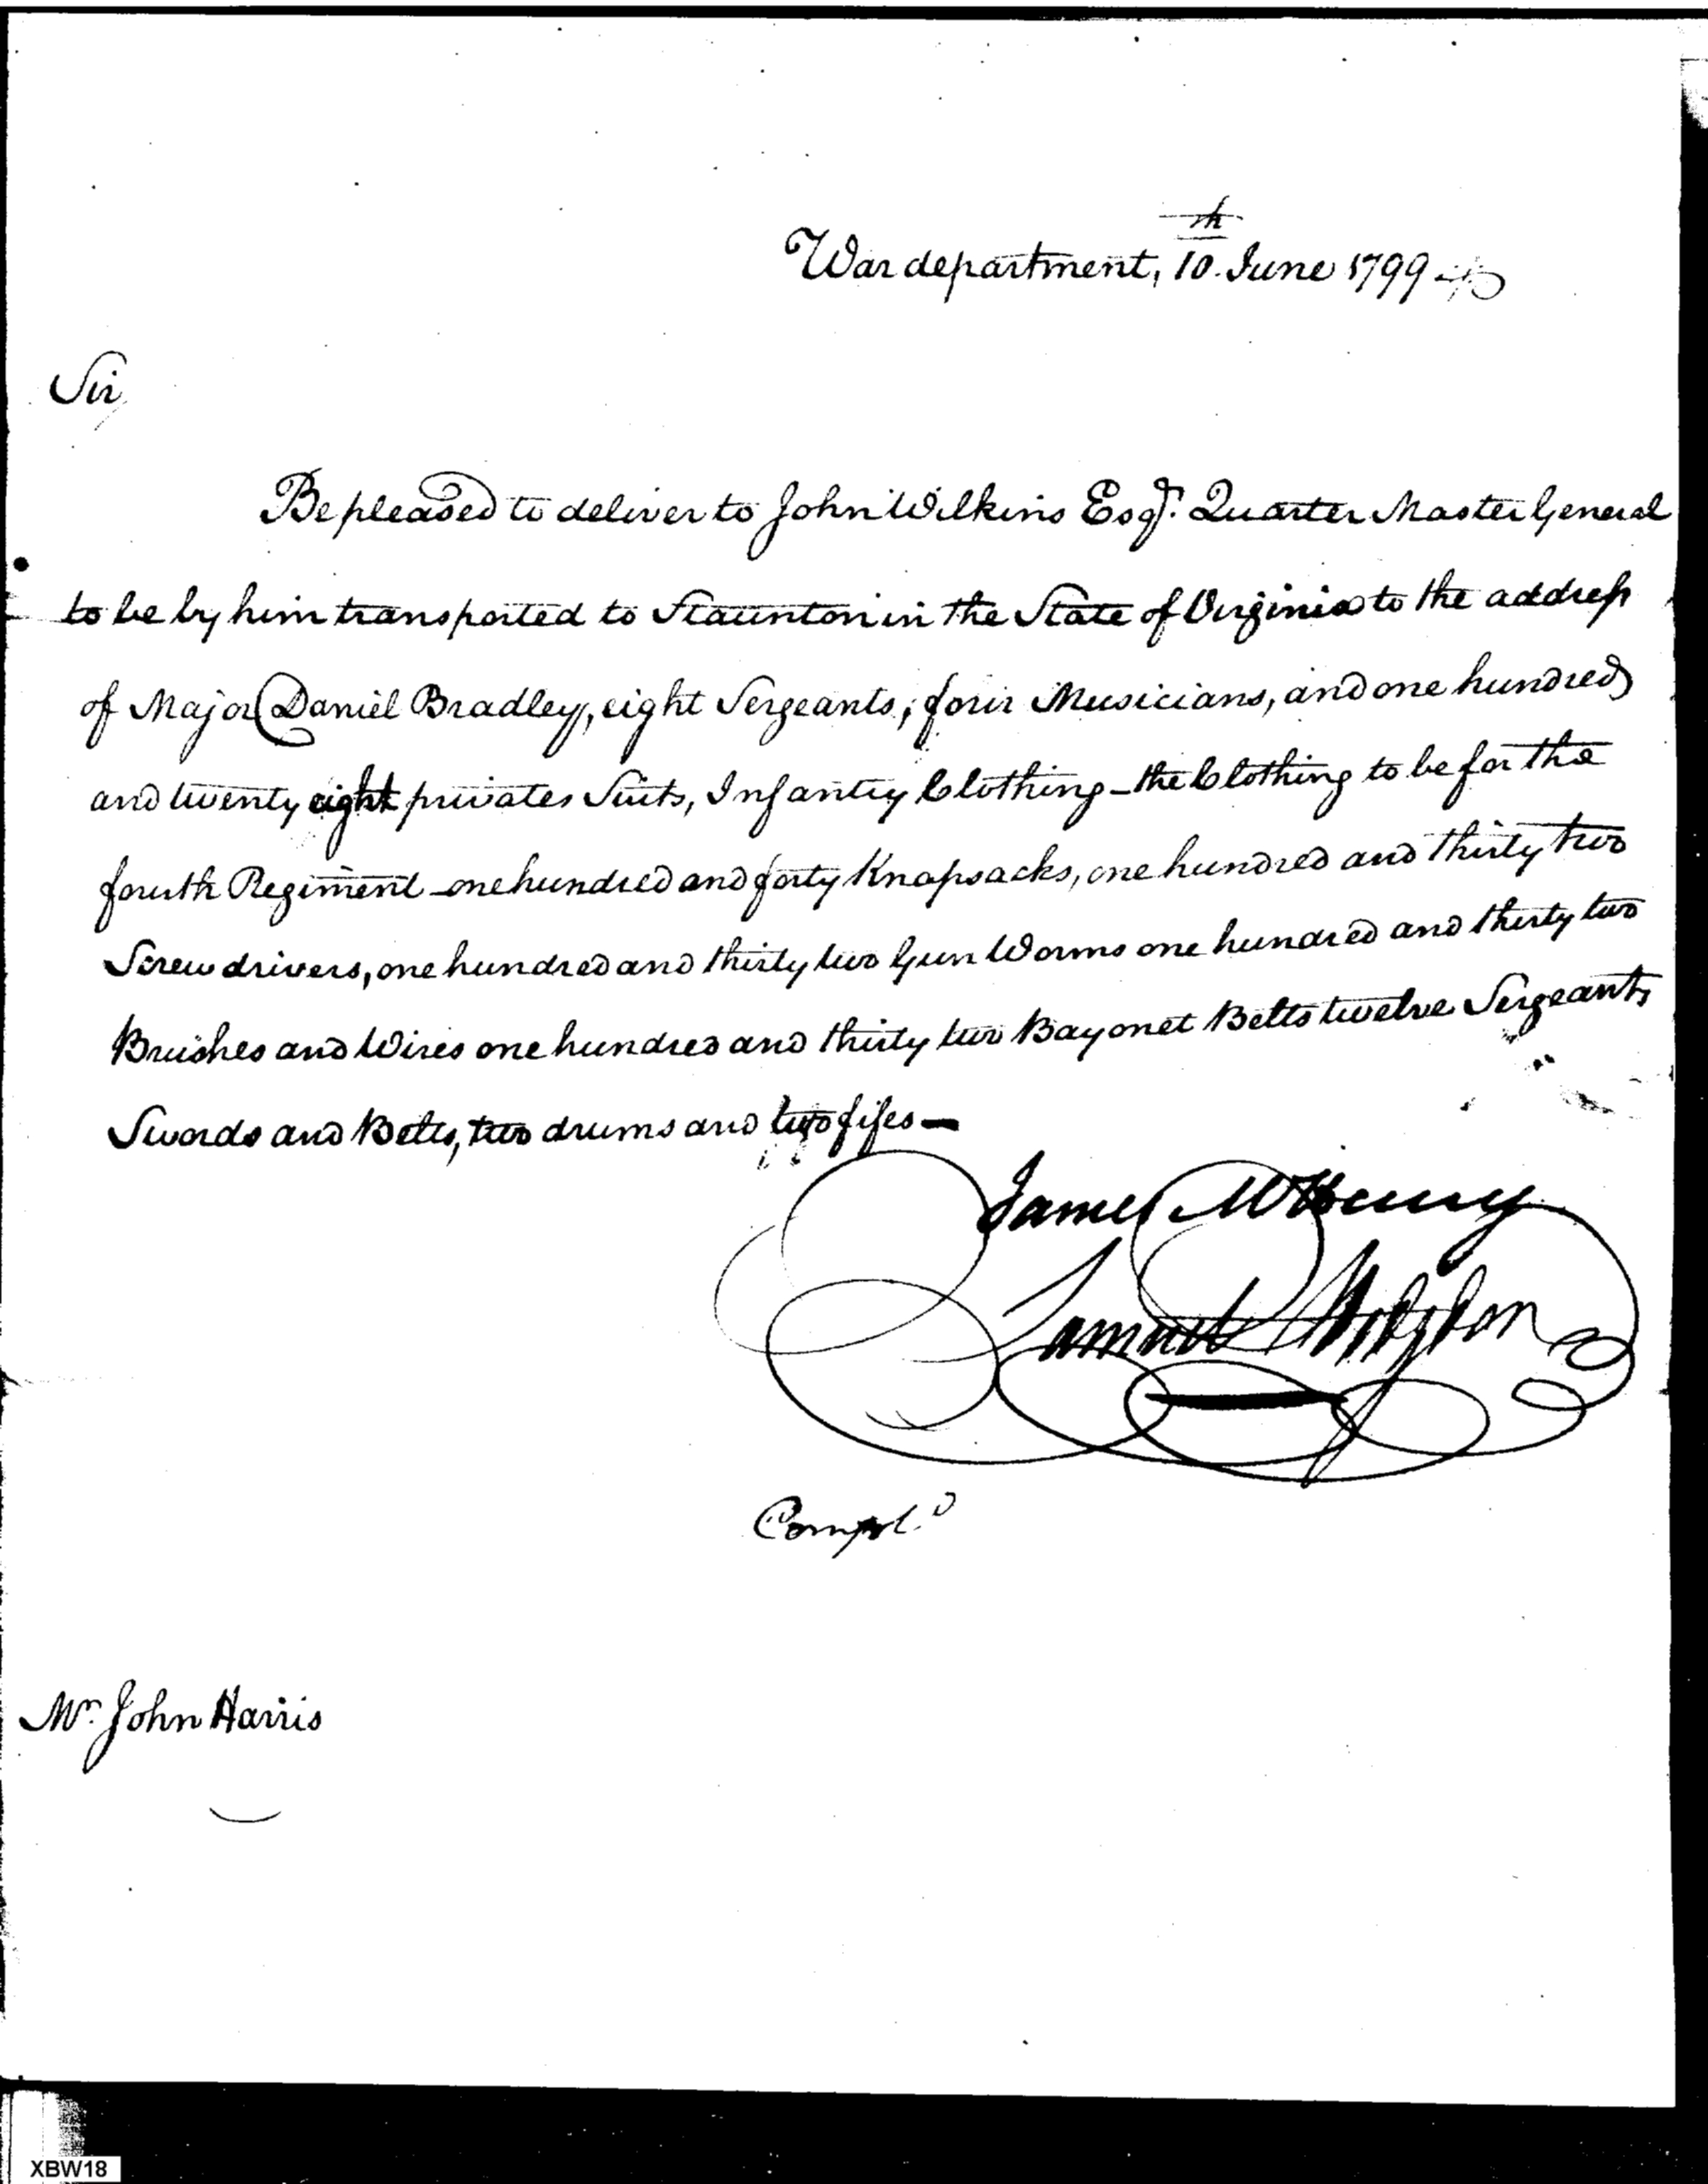 War department, 10th June 1799
Sir
Be pleased to deliver to John Wilkins Esqr. Quarter Master General
to be by him transported to Staunton in the State of Virginia to the address
of Major Daniel Bradley, eight Sergeants, four Musicians, and one hundred
and twenty eight privates Suits, Infantry Clothing - the Clothing to be for the
fourth Regiment - one hundred and forty Knapsacks, one hundred and thirty two
Screw drivers, one hundred and thirty two Gun Worms one hundred and thirty two
Brushes and Wires one hundred and thirty two Bayonet Belts twelve Sergeants
Swords and Belts, two drums and two fifes -
James McHenry
Samuel Hodgdon
Compld
Mr. John Harris
XBW18